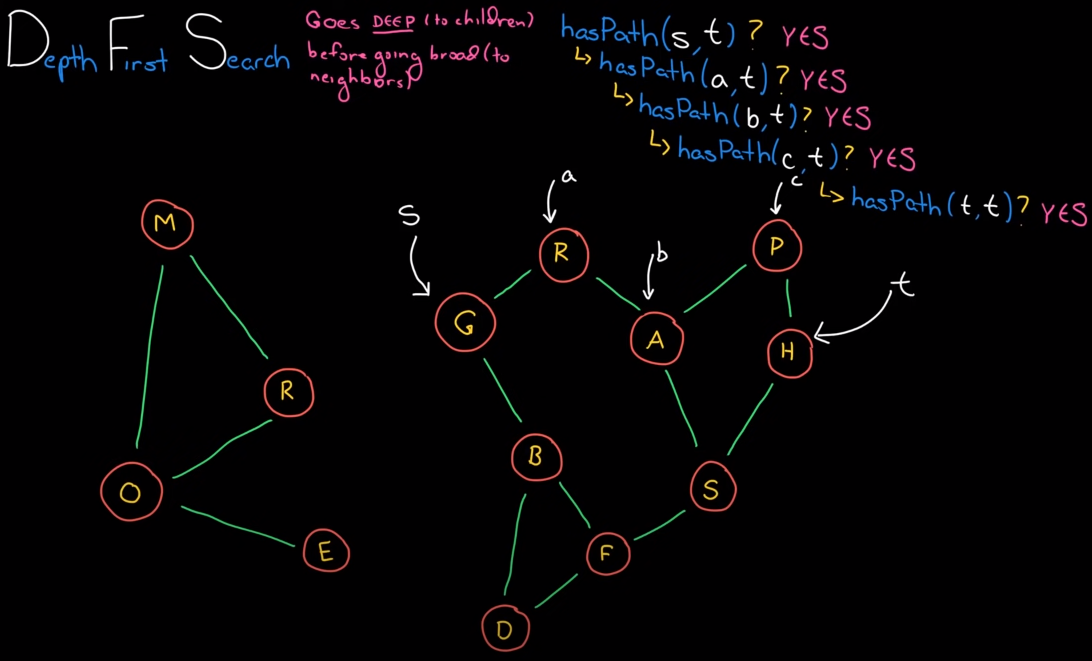 Depth First Search
Goes DEEP (to children)
before going broad (to
neighbors)
hasPath(s,t)? YES
↳ hasPath(a,t)? YES
↳ hasPath(b,t)? YES
↳ hasPath(c,t)? YES
↳ hasPath(t,t)? YES
s
a
b
c
t
M
R
O
E
G
R
A
P
H
B
S
F
D